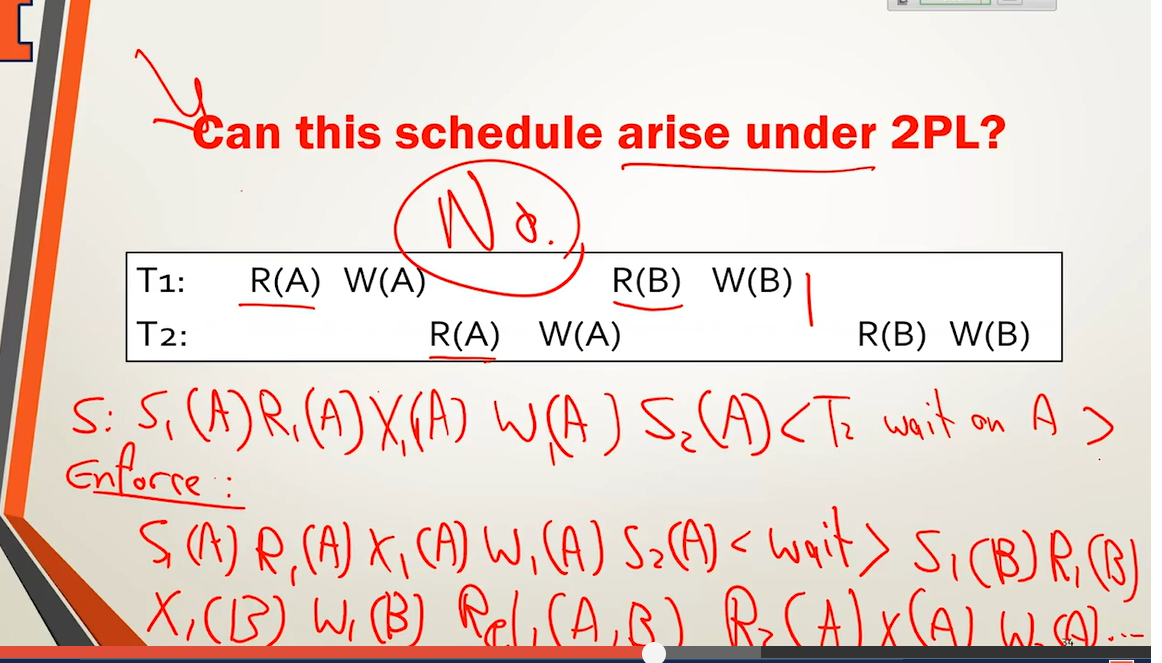 Can this schedule arise under 2PL?
No.
T1: R(A) W(A) R(B) W(B)
T2: R(A) W(A) R(B) W(B)
S: S₁(A) R₁(A) X₁(A) W₁(A) S₂(A) <T₂ wait on A >
Enforce :
S₁(A) R₁(A) X₁(A) W₁(A) S₂(A) < wait > S₁(B) R₁(B)
X₁(B) W₁(B) Rel₁(A,B) R₂(A) X(A) W₂(A)...
34